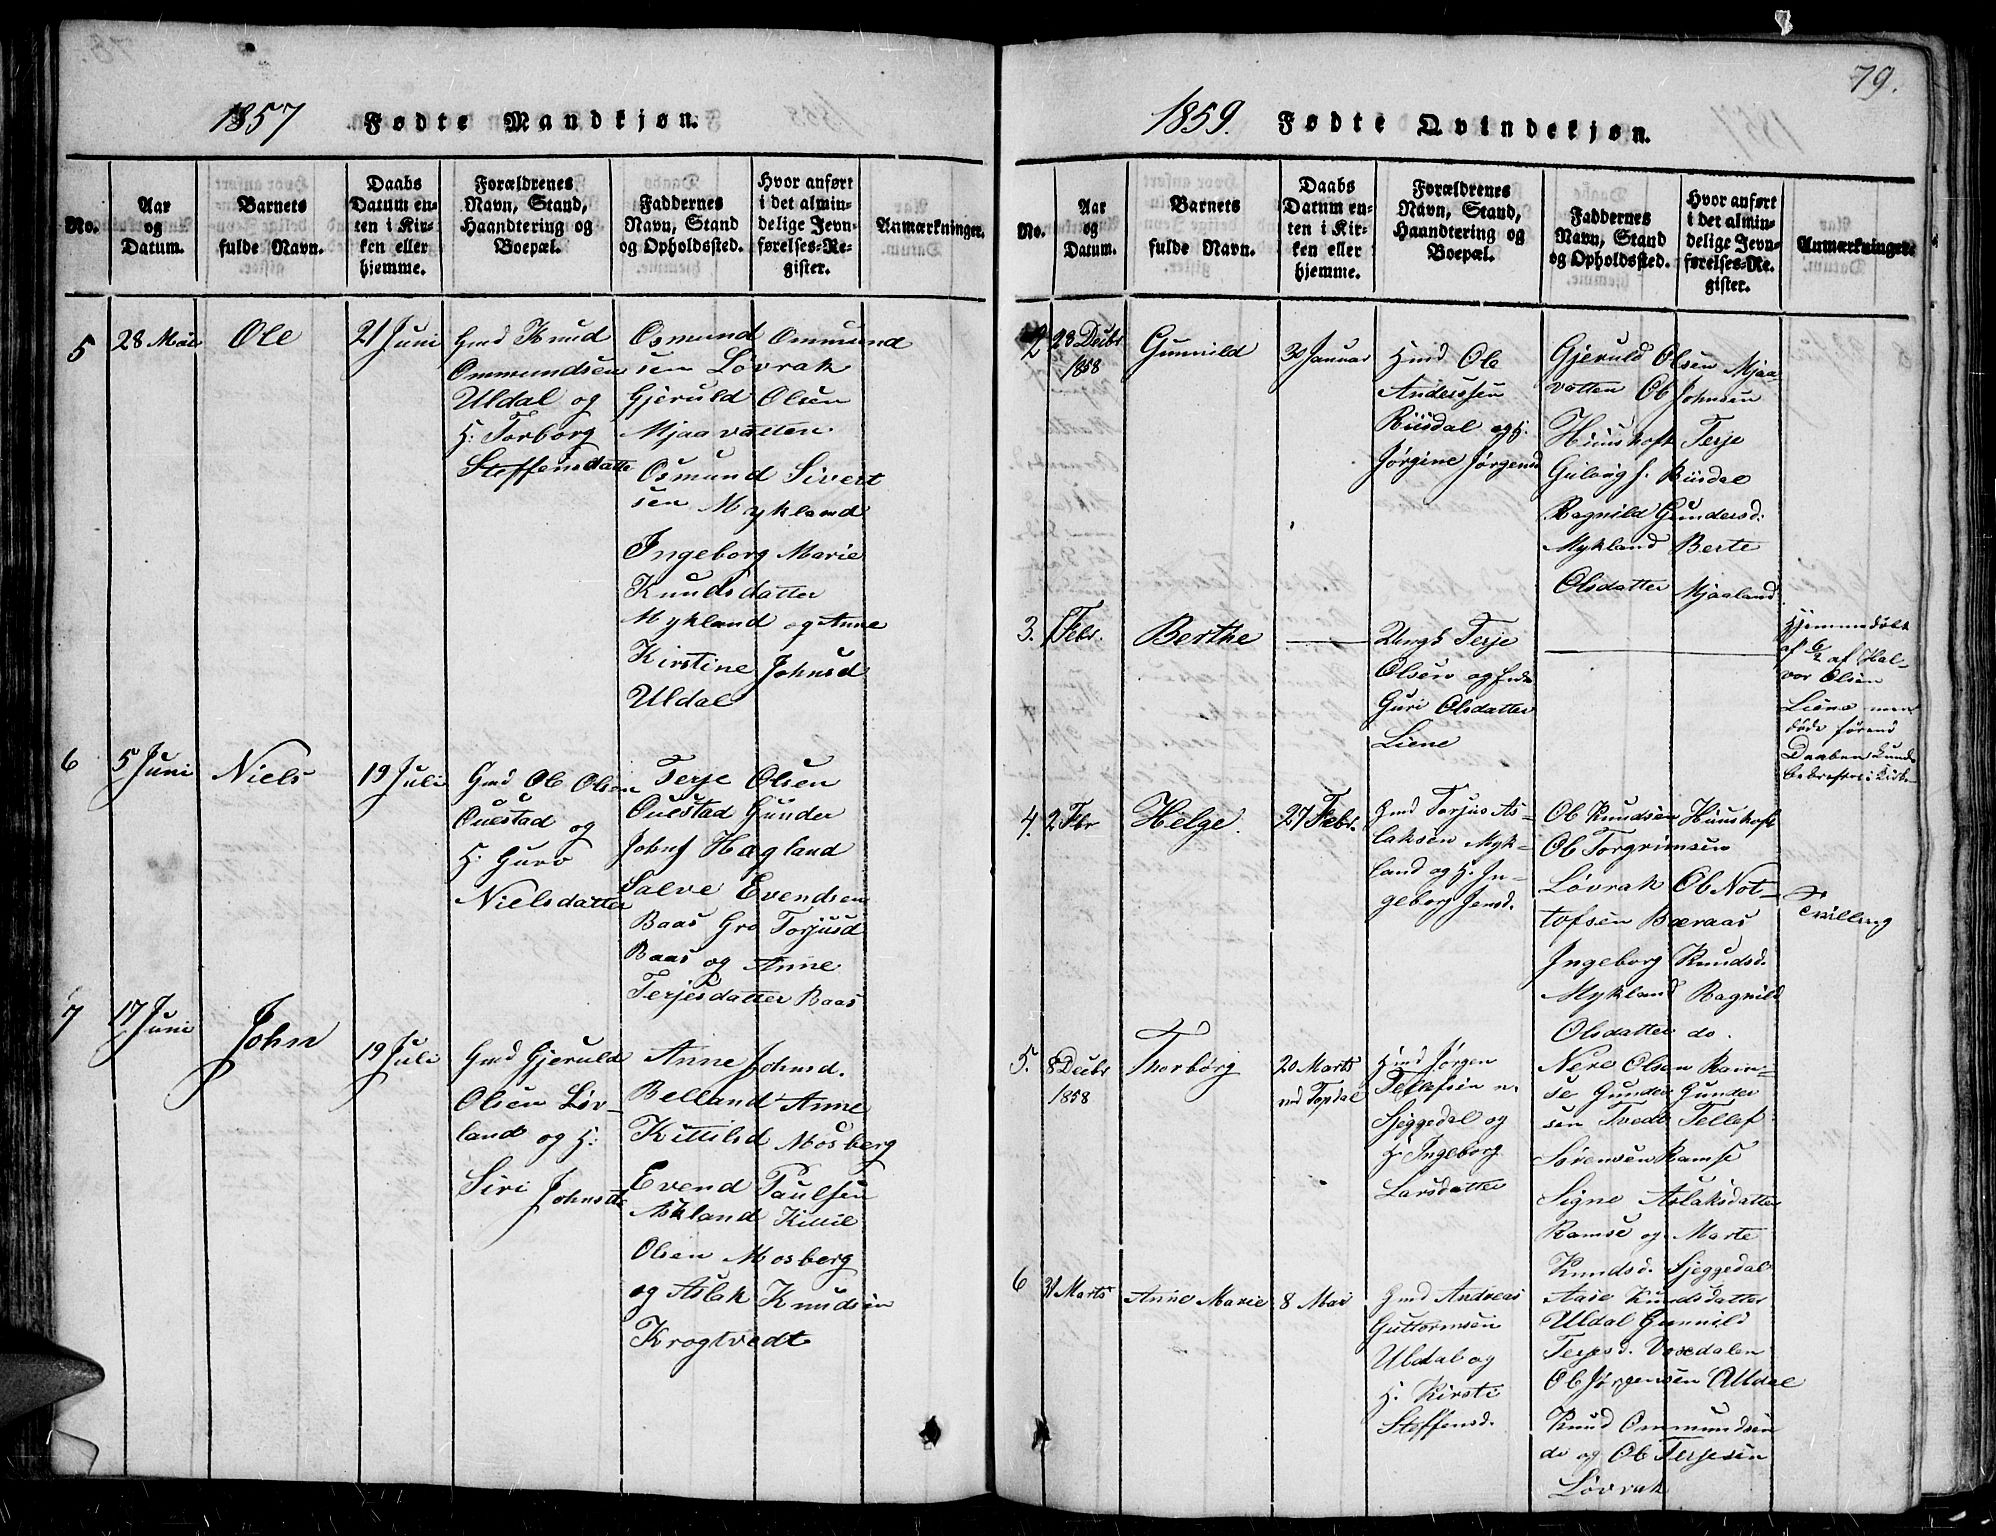 1857 Fødte Mandkjøn.
No.
Aar
og
Datum.
Barnets
fulde Navn.
Daabs
Datum en-
ten i Kir-
ken eller
hjemme.
Forældrenes
Navn, Stand,
Haandtering og
Boepæl.
Faddernes
Navn, Stand
og Opholdssted.
Hvor anført
i det almin-
delige Jevn-
førelses-Re-
gister.
Anmærkninger.
5
28 Mai
Ole
21 Juni
Gmd Knud
Ommundsen
Uldal og
H: Torborg
Steffensdatte
Osmund Ommund
sen Løvrak
Gjeruld Olsen
Mjaavatten
Osmund Sivert
sen Mykland
Ingeborg Marie
Knudsdatter
Mykland og Anne
Kirstine Johnsd
Uldal
6
5 Juni
Niels
19 Juli
Gmd Ole Olsen
Ouestad og
H: Guro
Nielsdatter
Terje Olsen
Ouestad Gunder
Johns Hægland
Salve Evendsen
Baas Gro Torjusd
Baas og Anne
Terjesdatter Baas
7
17 Juni
John
19 Juli
Gmd Gjeruld
Olsen Løv-
land og H:
Siri Johnsd
Anne Johnsd.
Belland Anne
Kittilsd Mosberg
Evend Paulsen
Askland Kittil
Olsen Mosberg
og Aslak Knudsen
Krogtvedt
79.
1859. Fødte Qvindekjøn.
No.
Aar
og
Datum.
Barnets
fulde Navn.
Daabs
Datum en-
ten i Kir-
ken eller
hjemme.
Forældrenes
Navn, Stand,
Haandtering og
Boepæl.
Faddernes
Navn, Stand
og Opholdssted.
Hvor anført
i det almin-
delige Jevn-
førelses-Re-
gister.
Anmærkninger.
2
23 Decbr
1858
Gunnild
30 Januar
Hmd Ole
Anderssen
Riisdal og H.
Jørgine Jørgensd
Gjeruld Olsen Mjaa-
vatten Ole Johnsen
Huuskoft Terje
Gulovs. Riisdal
Ragnild Gundersd.
Mykland Berte
Olsdatter Mjaaland
3.
1 Febr.
Berthe
Ungk Terje
Olsen og
Guri Olsdatter
Liene
Hjemmedøbt
af 6/2 af Hal-
vor Olsen
Liene men
døde førend
Daaben kunde
bekræftes i Kirke
4.
2 Fbr
Helge.
27 Febr.
Gmd Torjus As-
laksen Myk-
land og H. In-
geborg Jensd.
Ole Knudsen Huuskoft
Ole Torgrimsen
Løvrak Ole Not-
tofsen Bæraas
Ingeborg Knudsd.
Mykland Ragnild
Olsdatter do.
Tvilling
5.
8 Decbr
1858
Thorborg
20 Marts
ved Topdal
Hmd Jørgen
Tellefsen
Sjeggedal og
H. Ingeborg
Larsdatter
Nere Olsen Ram-
se Gunder Gunder
sen Tvedt Tellef
Sørensen Ramse
Signe Aslaksdatter
Ramse og Marte
Knudsd. Sjeggedal
6
31 Marts
Anne Marie
8 Mai
Gmd Andreas
Guttormsen
Uldal og
H. Kirsti
Steffensd.
Aase Knudsdatter
Uldal Gunnild
Terjesd. Vasedalen
Ole Jørgensen Uldal
Knud Ommundsen
do og Ole Terjesen
Løvrak